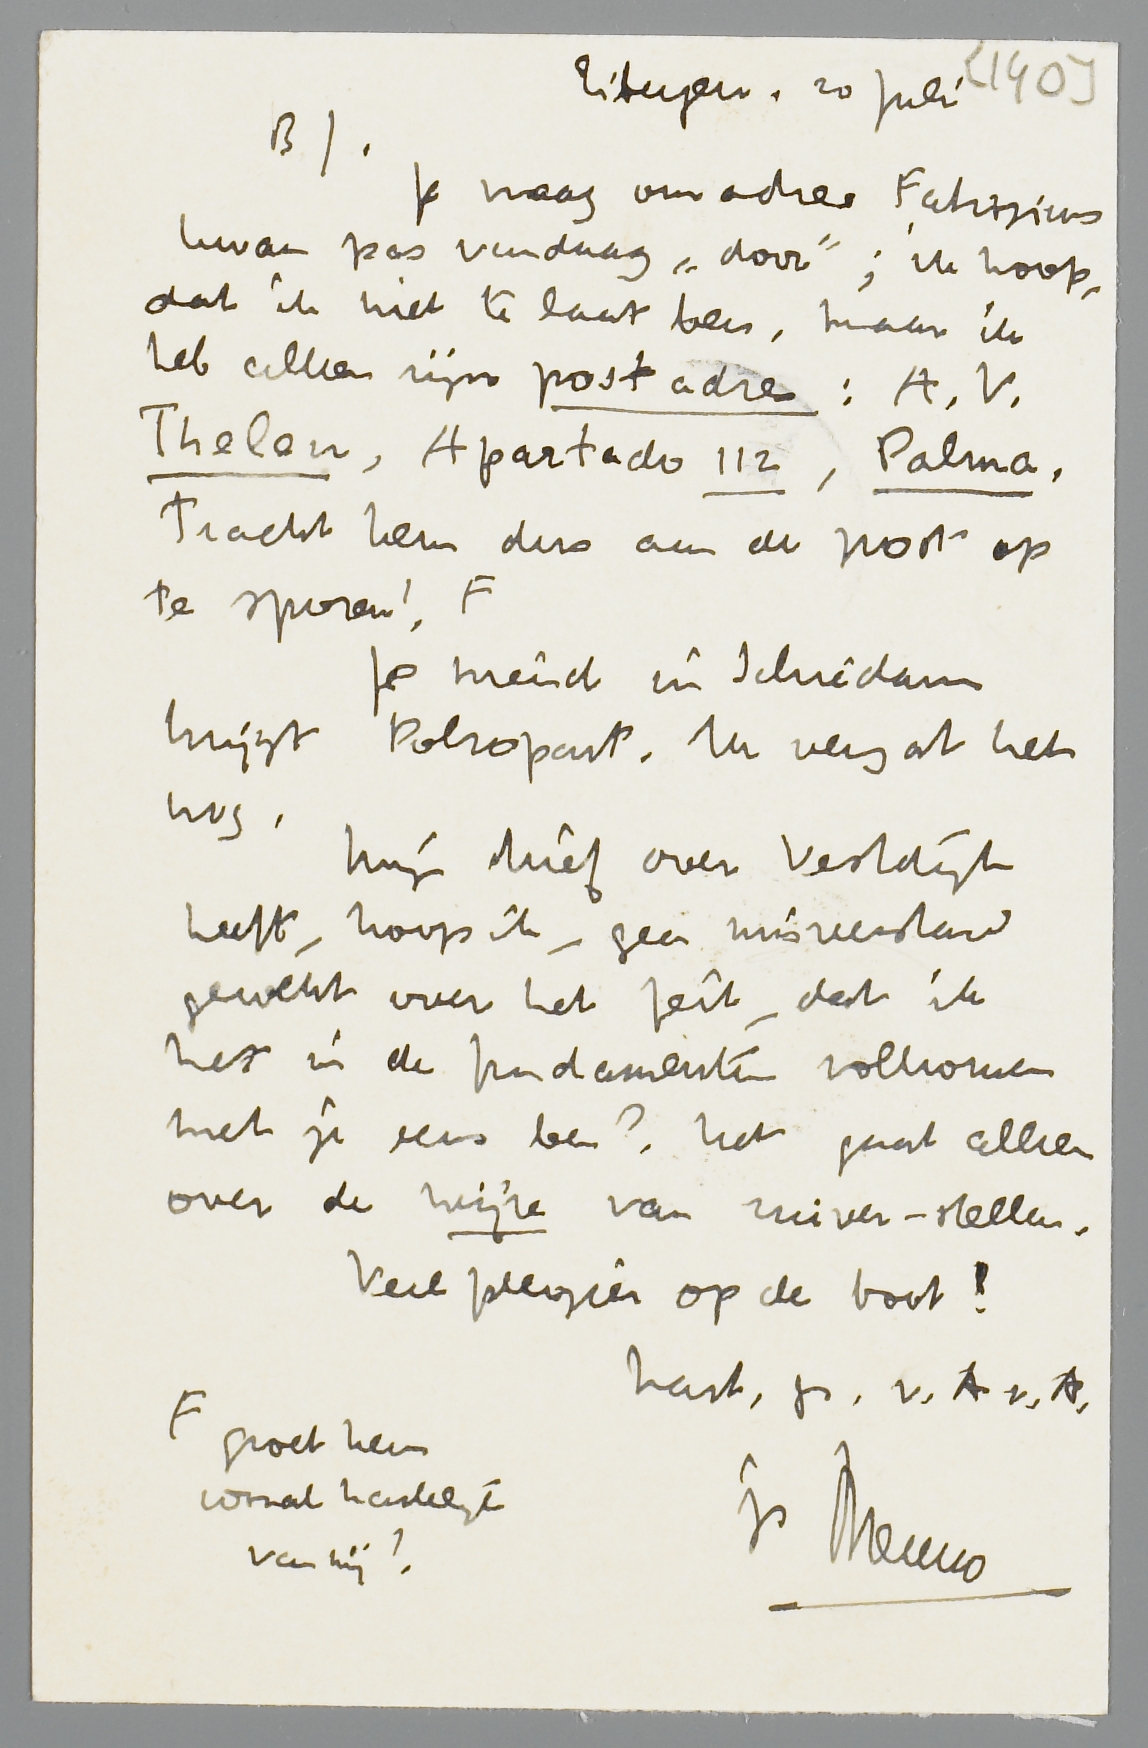 Eibergen, 20 Juli [140]
B J.
Je vraag om adres Fabrizius
kwam pas vandaag „door”; ik hoop,
dat ik niet te laat ben, maar ik
heb alleen zijn postadres: A. V.
Thelen, Apartado 112, Palma.
Tracht hem dus aan de post op
te sporen!. F
Je vriend in Schiedam
krijgt Politicopart. Ik vergat het
nog.
Mijn brief over Vestdijk
heeft, hoop ik, geen misverstand
gewekt over het feit, dat ik
het in de fundamenten volkomen
met je eens ben? Het gaat alleen
over de wijze van zuiver-stellen.
Veel plezier op de boot!
hart. gr. v. A v. A.
je Menno
F groet hem
vooral hartelijk
van mij!.